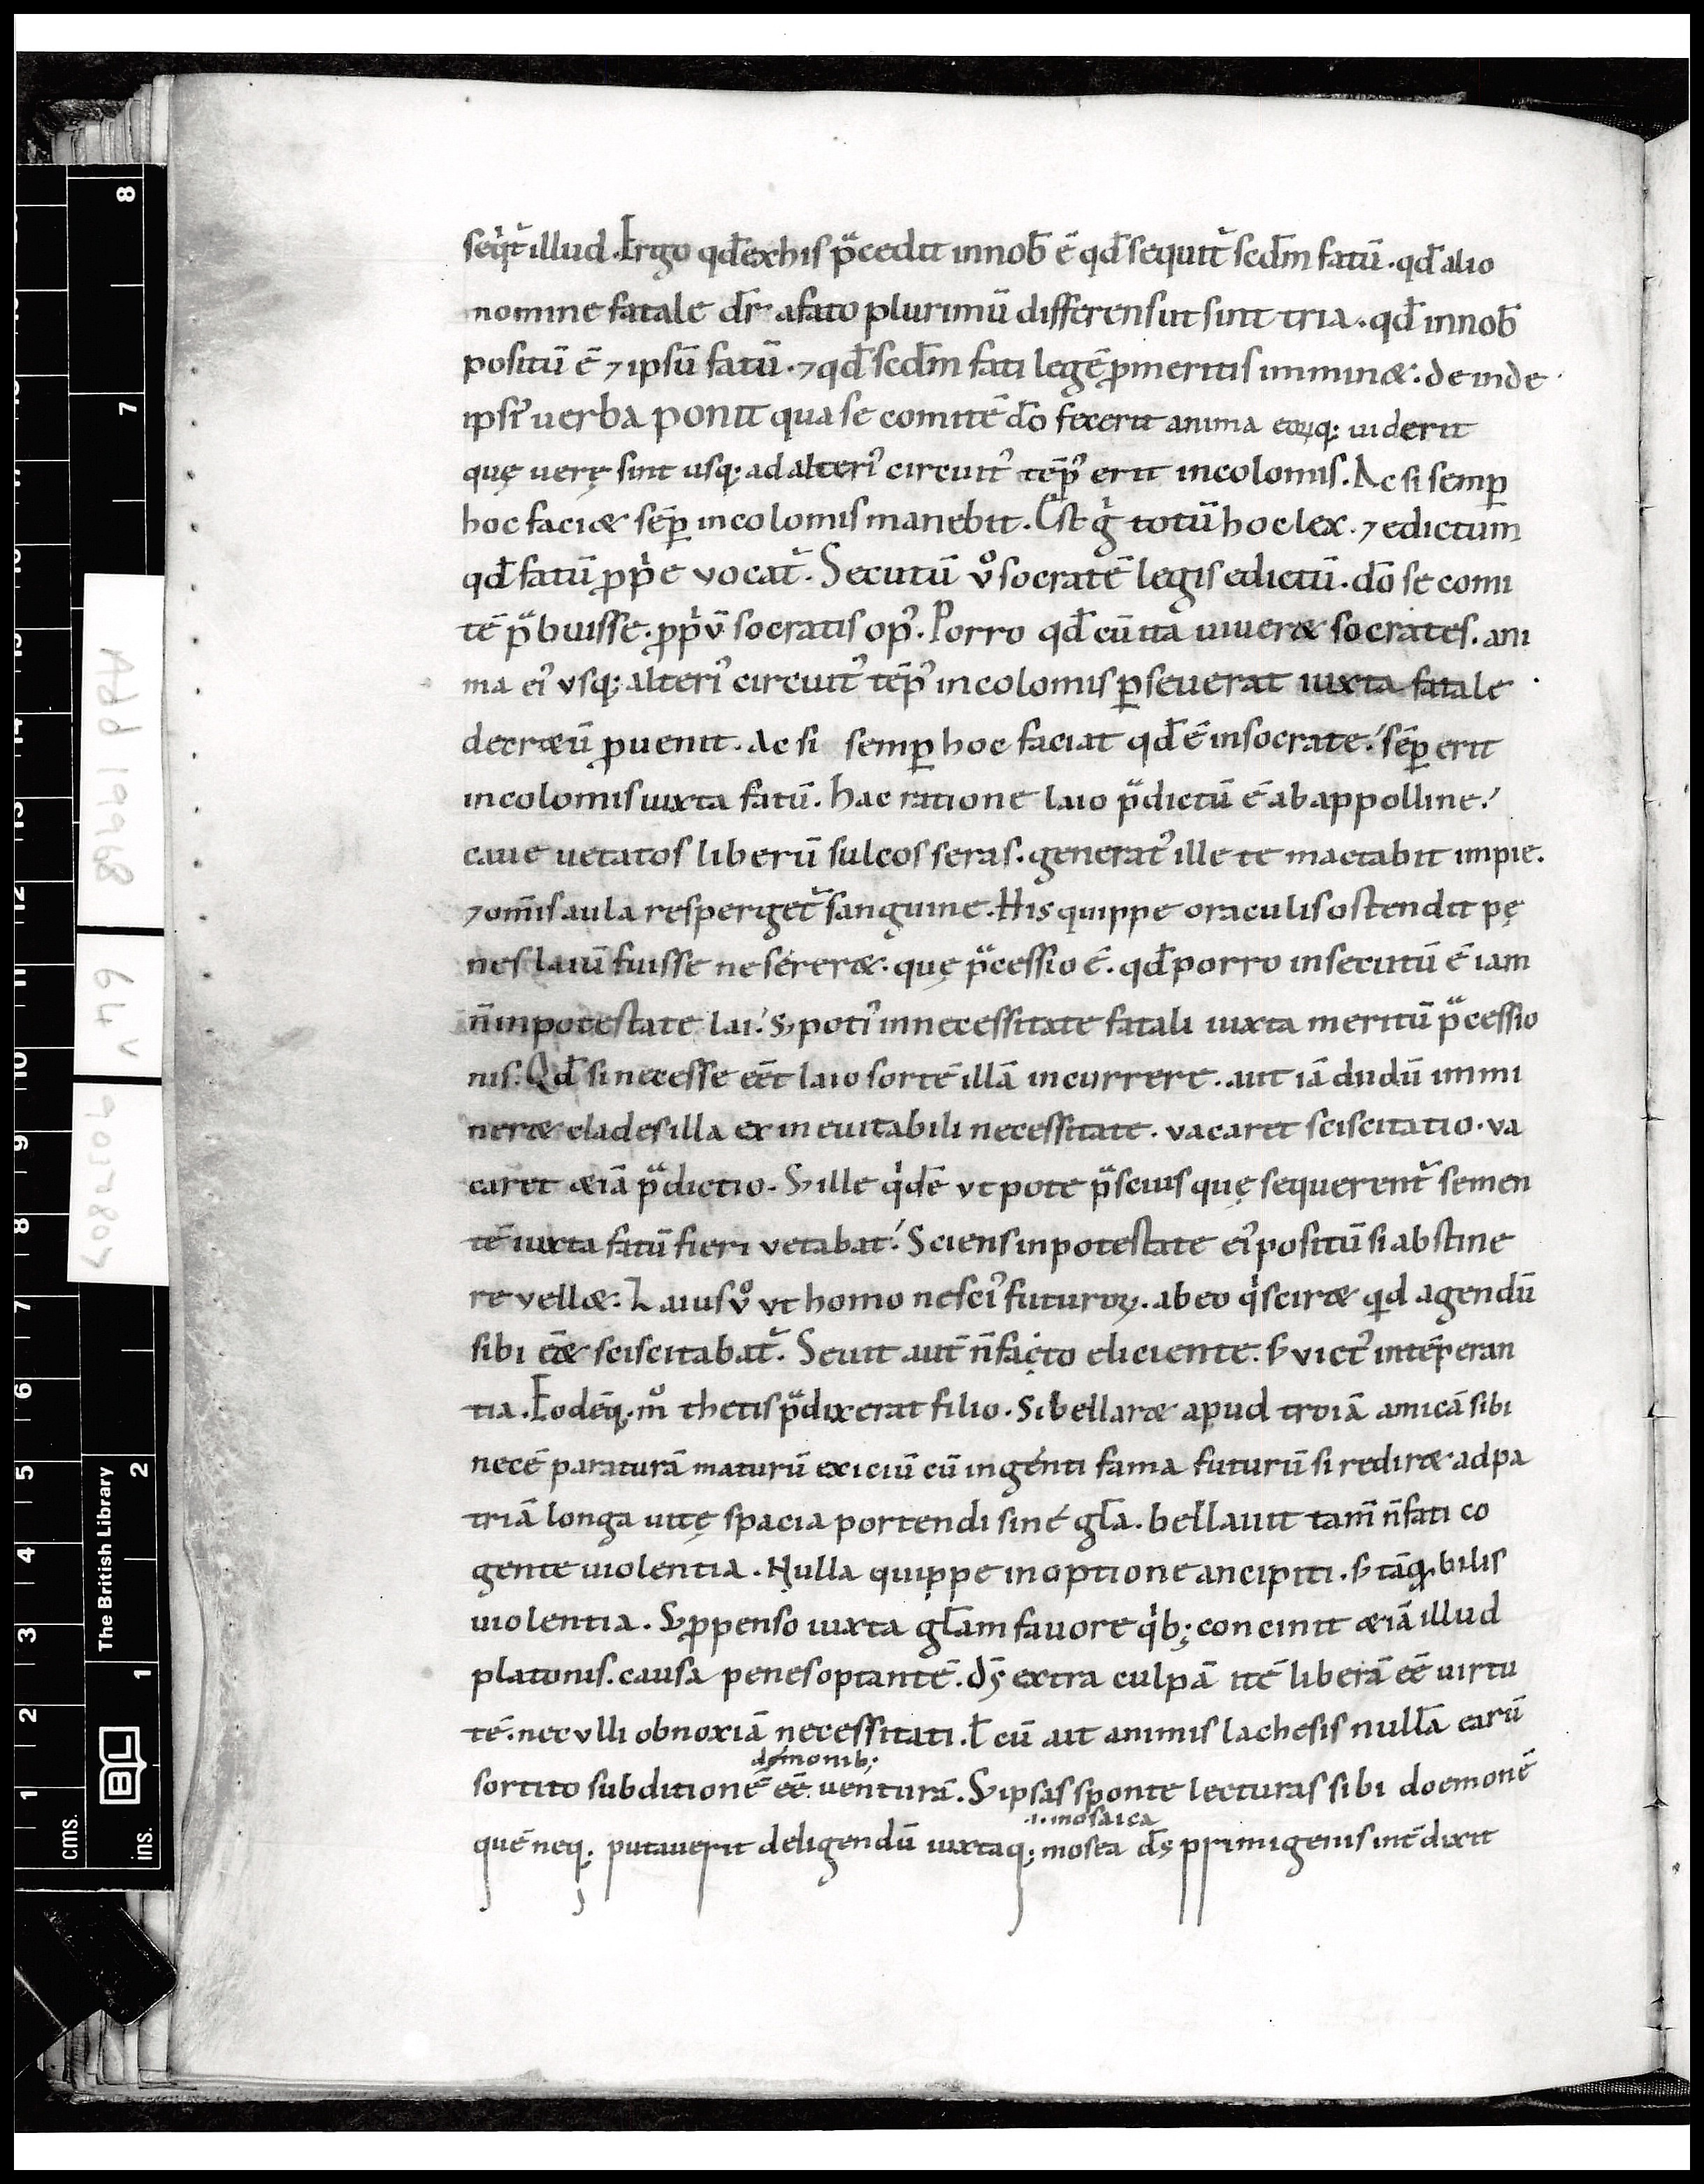 seqͥt᷑ illud. Ergo qđ ex his p̈cedit in nob̄ ē qđ sequit᷑ scđm fatū. qđ alio
nomine fatale dr̄. a fato plurimū differens ut sint tria. qđ in nob̄
positū ē ⁊ ipsū fatū. ⁊ qđ scđm fati legē ꝓ meritis imminæ. deinde
ipsiꝰ uerba ponit quase comitē dō fecerit anima eoꝝq; uiderit
quę uerę sint usq; ad alteriꝰ circuitꝰ tēp̄ꝰ erit incolomis. Ac si semꝑ
hoc faciæ sēꝑ incolomis manebit. Est gͥ totū hoc lex. ⁊ edictum
qđ fatū ꝓpͥe vocat᷑. Secutū v̊ socratē legis edictū. dō se comi
tē p̈buisse. ꝓpͥv̄ socratis opꝰ. Porro qđ cū ita uiueræ socrates. ani
ma eiꝰ vsq; alteriꝰ circuitꝰ tēp̄ꝰ incolomis ꝑseuerat iuxta fatale
decræū ꝓuenit. Ac si semꝑ hoc faciat qđ ē in socrate. sēꝑ erit
incolomis iuxta fatū. hac ratione laio p̈dictū ē ab appolline.
caue uetatos liberū sulcos seras. generatꝰ ille te mactabit impie.
⁊ om̄is aula resperget᷑ sanguine. His quippe oraculis ostendit pę
nes laiū fuisse ne sereræ. quę p̈cessio ē. qđ porro insecutū ē iam
n̄ in potestate lai. S; potiꝰ in necessitate fatali iuxta meritū p̈cessio
nis. Qđ si necesse eēt laio sortē illā incurrere. aut iā dudū immi
neræ clades illa ex ineuitabili necessitate. vacaret sciscitatio. va
caret æiā p̈dictio. S; ille qͥdē vt pote p̈scius quę sequerent᷑ semen
tē iuxta fatū fieri vetabat. Sciens in potestate eiꝰ positū si abstine
re vellæ. Laius v̊ vt homo nesciꝰ futuroꝝ. ab eo qͥ sciræ qͥd agendū
sibi eēæ sciscitabat᷑. Seuit aut̄ n̄ facto eliciente. s; victꝰ intēperan
tia. Eodēq; m̊ thetis p̈dixerat filio. Si bellaræ apud troiā amicā sibi
necē paraturā maturū exiciū cū ingenti fama futurū si rediræ ad pa
triā longa uitę spacia portendi sine gl̄a. bellauit tam̄ n̄ fati co
gente uiolentia. Nulla quippe in optione ancipiti. s; tāqͣ bilis
uiolentia. S; ꝓpenso iuxta gl̄am fauore qͥb; concinit æiā illud
platonis. causa penes optantē. ds̄ extra culpā itē liberā eē uirtu
tē. nec vlli obnoxiā necessitati. ł cū ait animis lachesis nullā earū
dęmonib;
sortito subditionē eē. venturā. S; ipsas sponte lecturas sibi doemonē
.i. mosaica
quē neq; putauerit deligendū iuxtaq; mosea ds̄ primigenis intēdixit
Add 19968
64 v
9037807
The British Library
BL
cms.
ins.
1 2 3 4 5 6 7 8 9 10 11 12 13 14 15
1 2 7 8